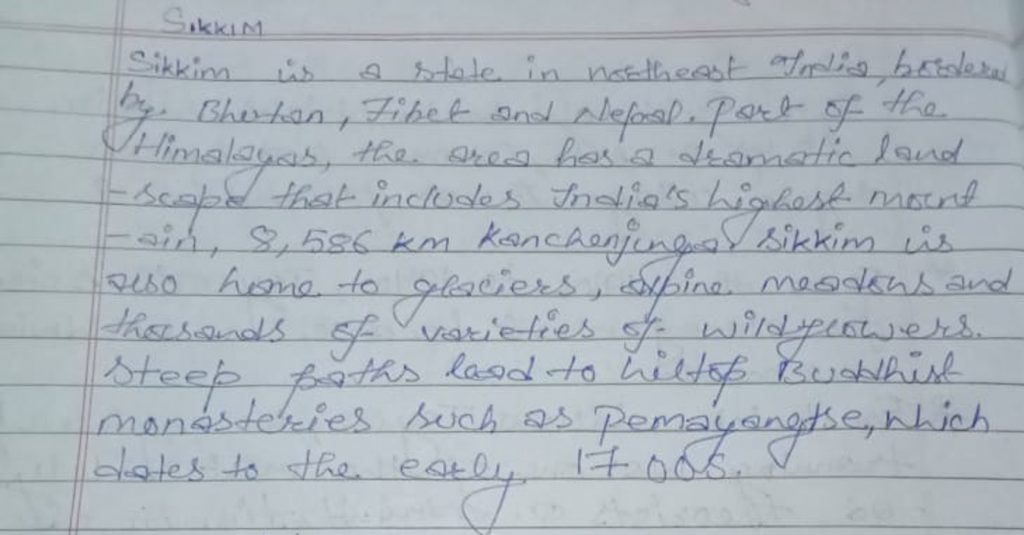 SIKKIM
Sikkim is a state in northeast India, bordered
by. Bhutan, Tibet and Nepal. Part of the
Himalayas, the area has a dramatic land
-scape that includes India's highest mount
-ain, 8,586 km Kanchenjunga. Sikkim is
also home to glaciers, alpine meadows and
thousands of varieties of wildflowers.
Steep paths lead to hiltop Buddhist
monasteries such as Pemayangtse, which
dates to the early 1700s.